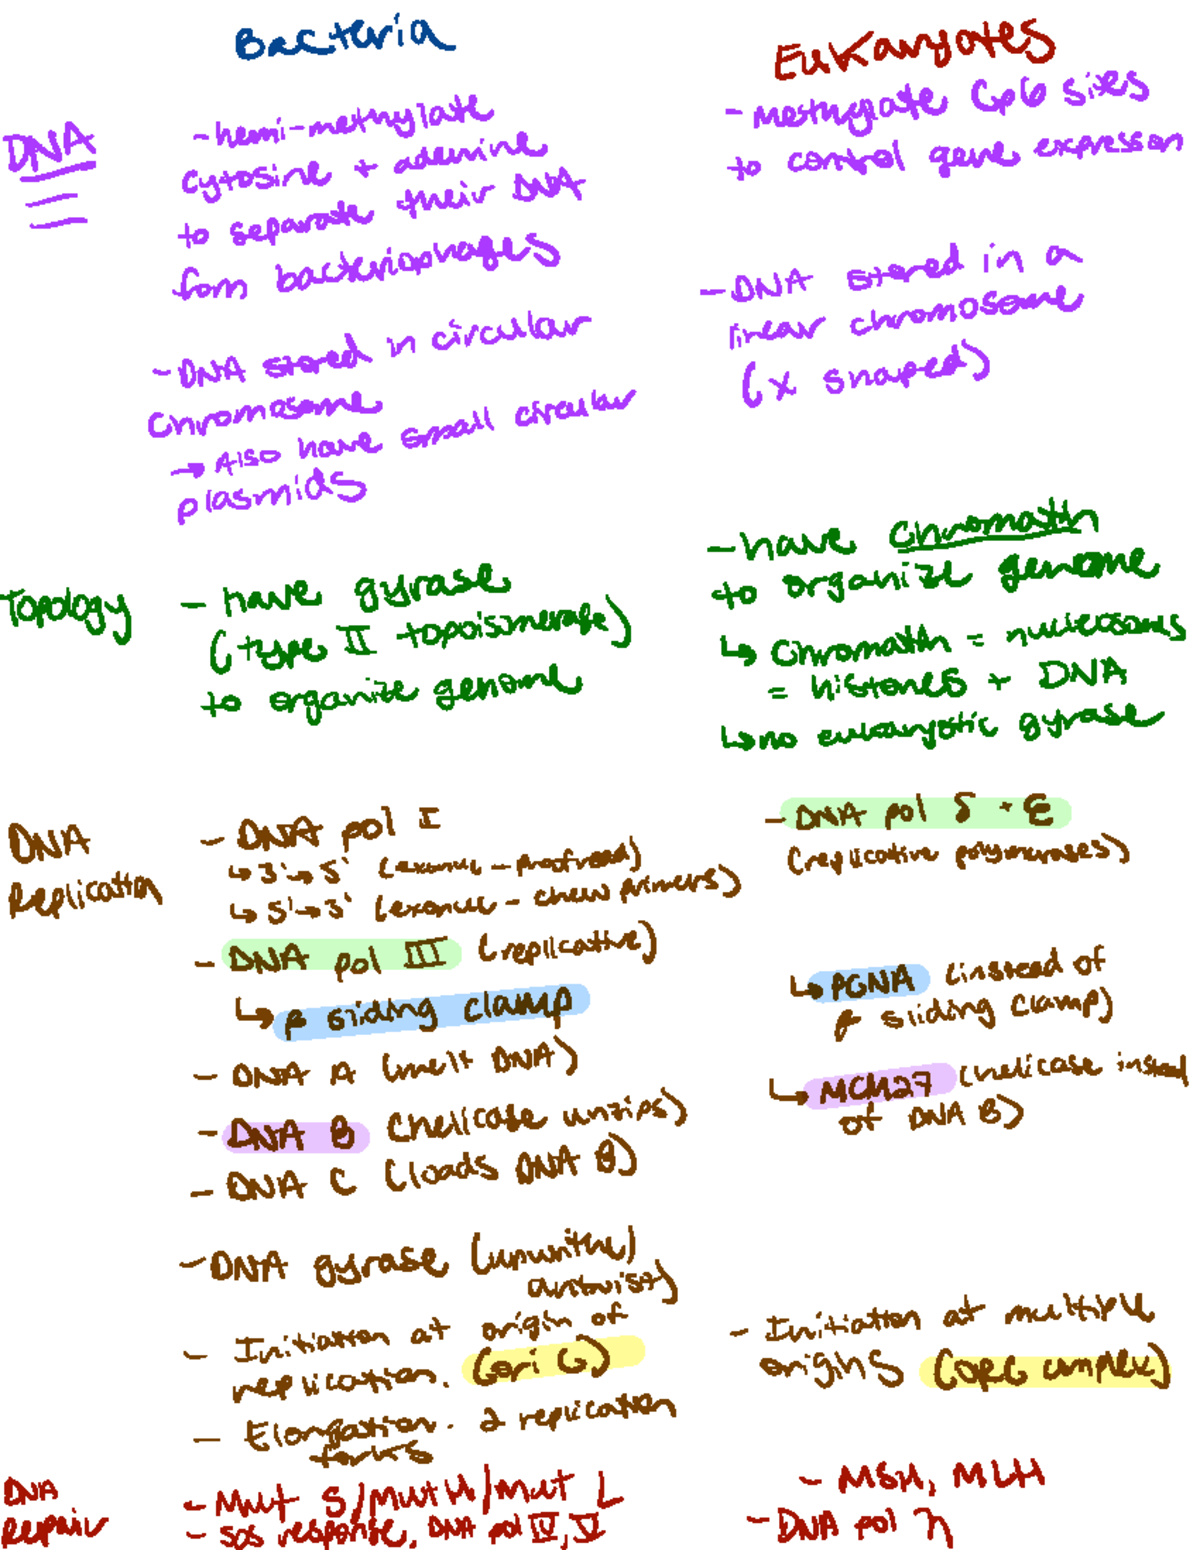 Bacteria
Eukaryotes
DNA
- hemi-methylate
cytosine + adenine
to separate their DNA
from bacteriophages
- DNA stored in circular
chromosome
→ Also have small circular
plasmids
- Methylate CpG sites
to control gene expression
- DNA stored in a
linear chromosome
(x shaped)
Topology
- have gyrase
(type II topoisomerase)
to organize genome
- have chromatin
to organize genome
↳ chromatin = nucleosomes
= histones + DNA
↳ no eukaryotic gyrase
DNA
Replication
- DNA pol I
↳ 3'→5' (exonuc - proofread)
↳ 5'→3' (exonuc - chew primers)
- DNA pol III (replicative)
↳ β sliding clamp
- DNA A (melt DNA)
- DNA B (helicase unzips)
- DNA C (loads DNA B)
- DNA gyrase (unwrithe/
untwist)
- Initiation at origin of
replication. (ori C)
- Elongation. 2 replication
forks
- DNA pol δ + ε
(replicative polymerases)
↳ PCNA (instead of
β sliding clamp)
↳ MCM27 (helicase instead
of DNA B)
- Initiation at multiple
origins (ORC complex)
DNA
Repair
- Mut S/Mut H/Mut L
- SOS response, DNA pol IV, V
- MSH, MLH
- DNA pol η